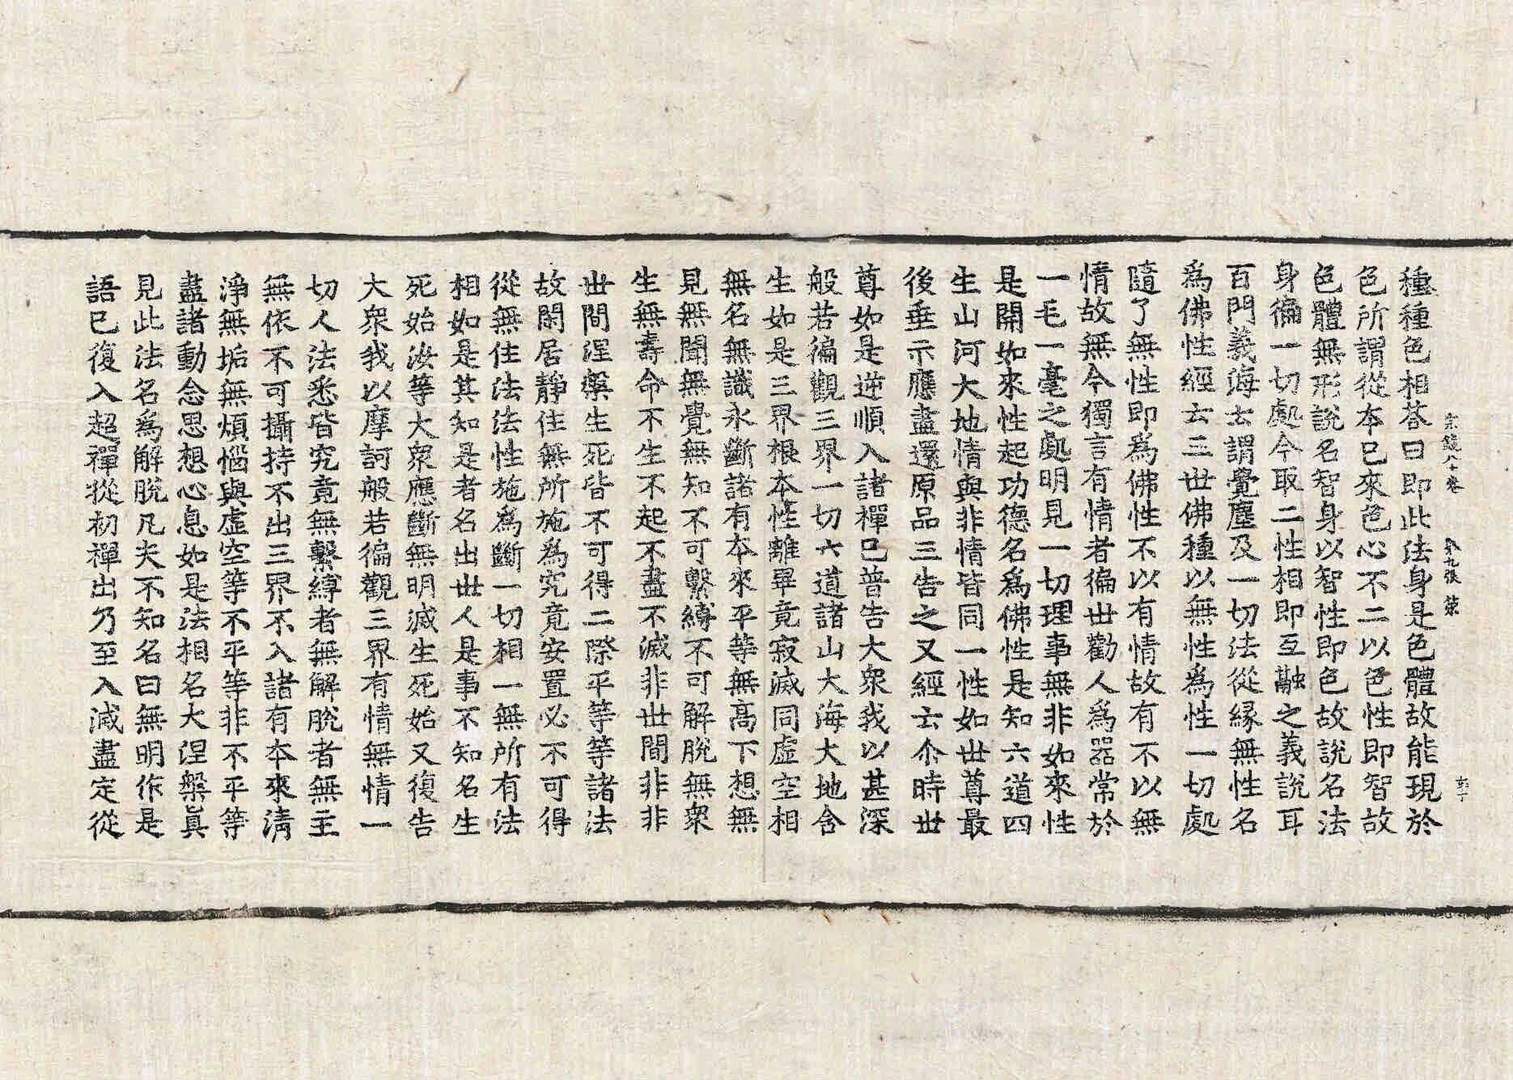 宗鏡八十卷 第九張
種種色相荅曰即此法身是色體故能現於
色所謂從本已來色心不二以色性即智故
色體無形說名智身以智性即色故說名法
身徧一切處今取二性相即互融之義說耳
百門義海云謂覺塵及一切法從緣無性名
爲佛性經云三世佛種以無性爲性一切處
隨了無性即爲佛性不以有情故有不以無
情故無今獨言有情者徧世勸人爲器常於
一毛一毫之處明見一切理事無非如來性
是開如來性起功德名爲佛性是知六道四
生山河大地情與非情皆同一性如世尊最
後垂示應盡還原品三告之又經云尒時世
尊如是逆順入諸禪已普告大衆我以甚深
般若徧觀三界一切六道諸山大海大地含
生如是三界根本性離畢竟寂滅同虛空相
無名無識永斷諸有本來平等無高下想無
見無聞無覺無知不可繫縛不可解脫無衆
生無壽命不生不起不盡不滅非世間非非
世間涅槃生死皆不可得二際平等等諸法
故閑居靜住無所施爲究竟安置必不可得
從無住法法性施爲斷一切相一無所有法
相如是其知是者名出世人是事不知名生
死始汝等大衆應斷無明滅生死始又復告
大衆我以摩訶般若徧觀三界有情無情一
切人法悉皆究竟無繫縛者無解脫者無主
無依不可攝持不出三界不入諸有本來清
淨無垢無煩惱與虛空等不平等非不平等
盡諸動念思想心息如是法相名大涅槃眞
見此法名爲解脫凡夫不知名曰無明作是
語已復入超禪從初禪出乃至入滅盡定從